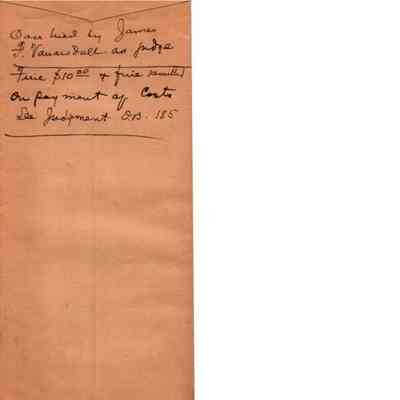 Case tried by James
F. Vanarsdall as judge
Fine $10.00 & fine remitted
on payment of Costs
See Judgment O.B. 185